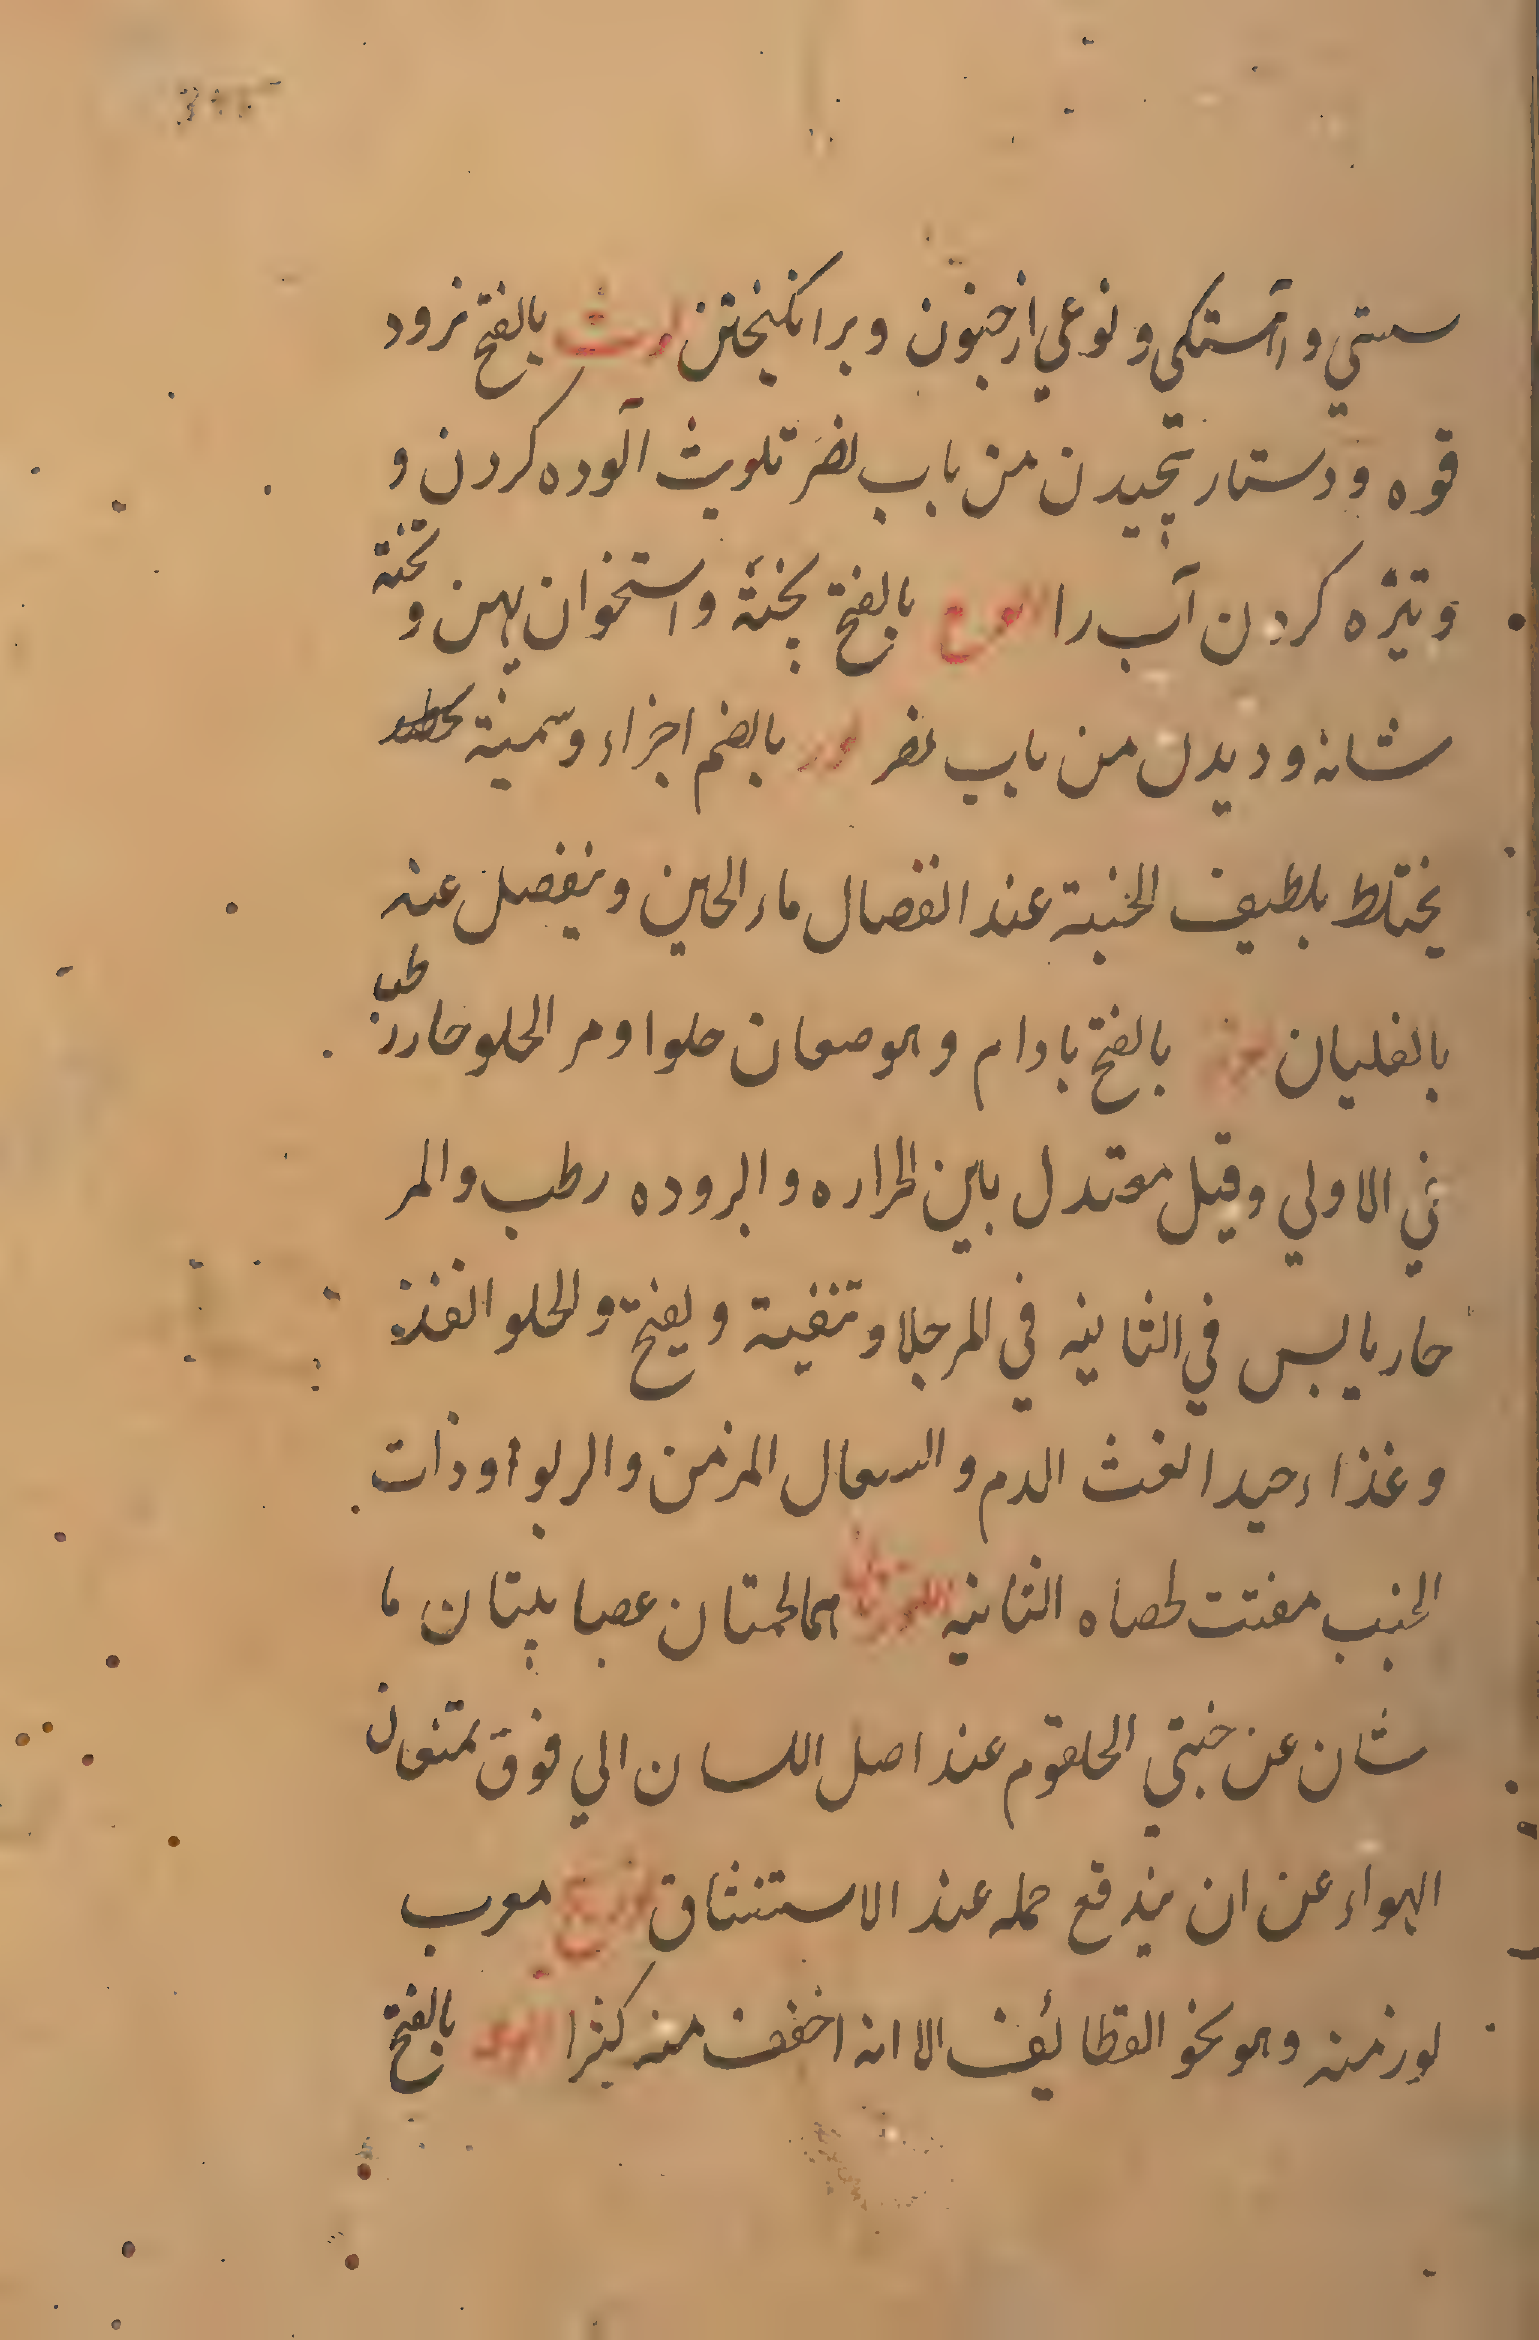 سستي و آستكي و نوعي از جنون و برانكيختن لوث بالفتح نرود
قوه و دستار پيچيدن من باب نصر تلويث آلوده كردن و
و تيره كردن آب را اللوح بالفتح تختة و استخوان پهن و تخته
شانه و ديدن من باب نصر لور بالضم اجزاء و سمينة
يختلط بلطيف الجنبة عند انفصال ماء الجبن و ينفصل عنه
بالغليان بالفتح بادام و هو صعان حلو او مر الحلو حار رطب
في الاولي و قيل معتدل بين الحراره و البروده رطب و المر
حار يابس في الثانيه في المر جلا و تنقية و يفتح و الحلو الغذ
و غذاء جيد النفث الدم و السعال المزمن و الربو او ذات
الجنب مفتت لحصاه الثانيه اللوزتان هما لحمتان عصبا نيتان ما
شان عن جنبتي الحلقوم عند اصل اللسان الي فوق تمنعان
الهواء عن ان يندفع حمله عند الاستنشاق لوزينج معرب
لوزمنه و هو نحو القطائف الا انه اخفف منه كثيرا بالفتح